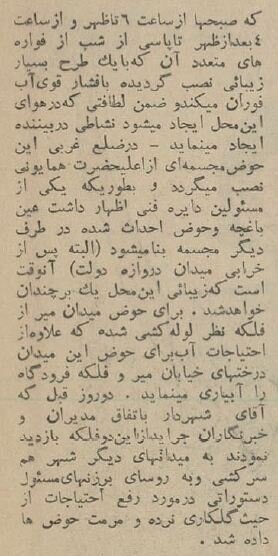 که صبحها از ساعت ۶ تاظهر و ازساعت
۴ بعدازظهر تاپاسی از شب از فواره
های متعدد آن که بایک طرح بسیار
زیبائی نصب گردیده بافشار قوی آب
فوران میکندو ضمن لطافتی که درهوای
این محل ایجاد میشود نشاطی دربیننده
ایجاد مینماید - درضلع غربی این
حوض مجسمه‌ای ازاعلیحضرت همایونی
نصب میگردد و بطوریکه یکی از
مسئولین دایره فنی اظهار داشت عین
باغچه وحوض احداث شده در طرف
دیگر مجسمه بنامیشود (البته پس از
خرابی میدان دروازه دولت) آنوقت
است که زیبائی این محل یک برچندان
خواهدشد . برای حوض میدان میر از
فلکه نظر لوله کشی شده که علاوه‌از
احتیاجات آب برای حوض این میدان
درختهای خیابان میر و فلکه فرودگاه
را آبیاری مینماید . دوروز قبل که
آقای شهردار باتفاق مدیران و
خبرنگاران جرایدازاین دوفلکه بازدید
نمودند به میدانهای دیگر شهر هم
سرکشی وبه روسای برزنهای مسئول
دستوراتی درمورد رفع احتیاجات از
حیث گلکاری نرده و مرمت حوض ها
داده شد .